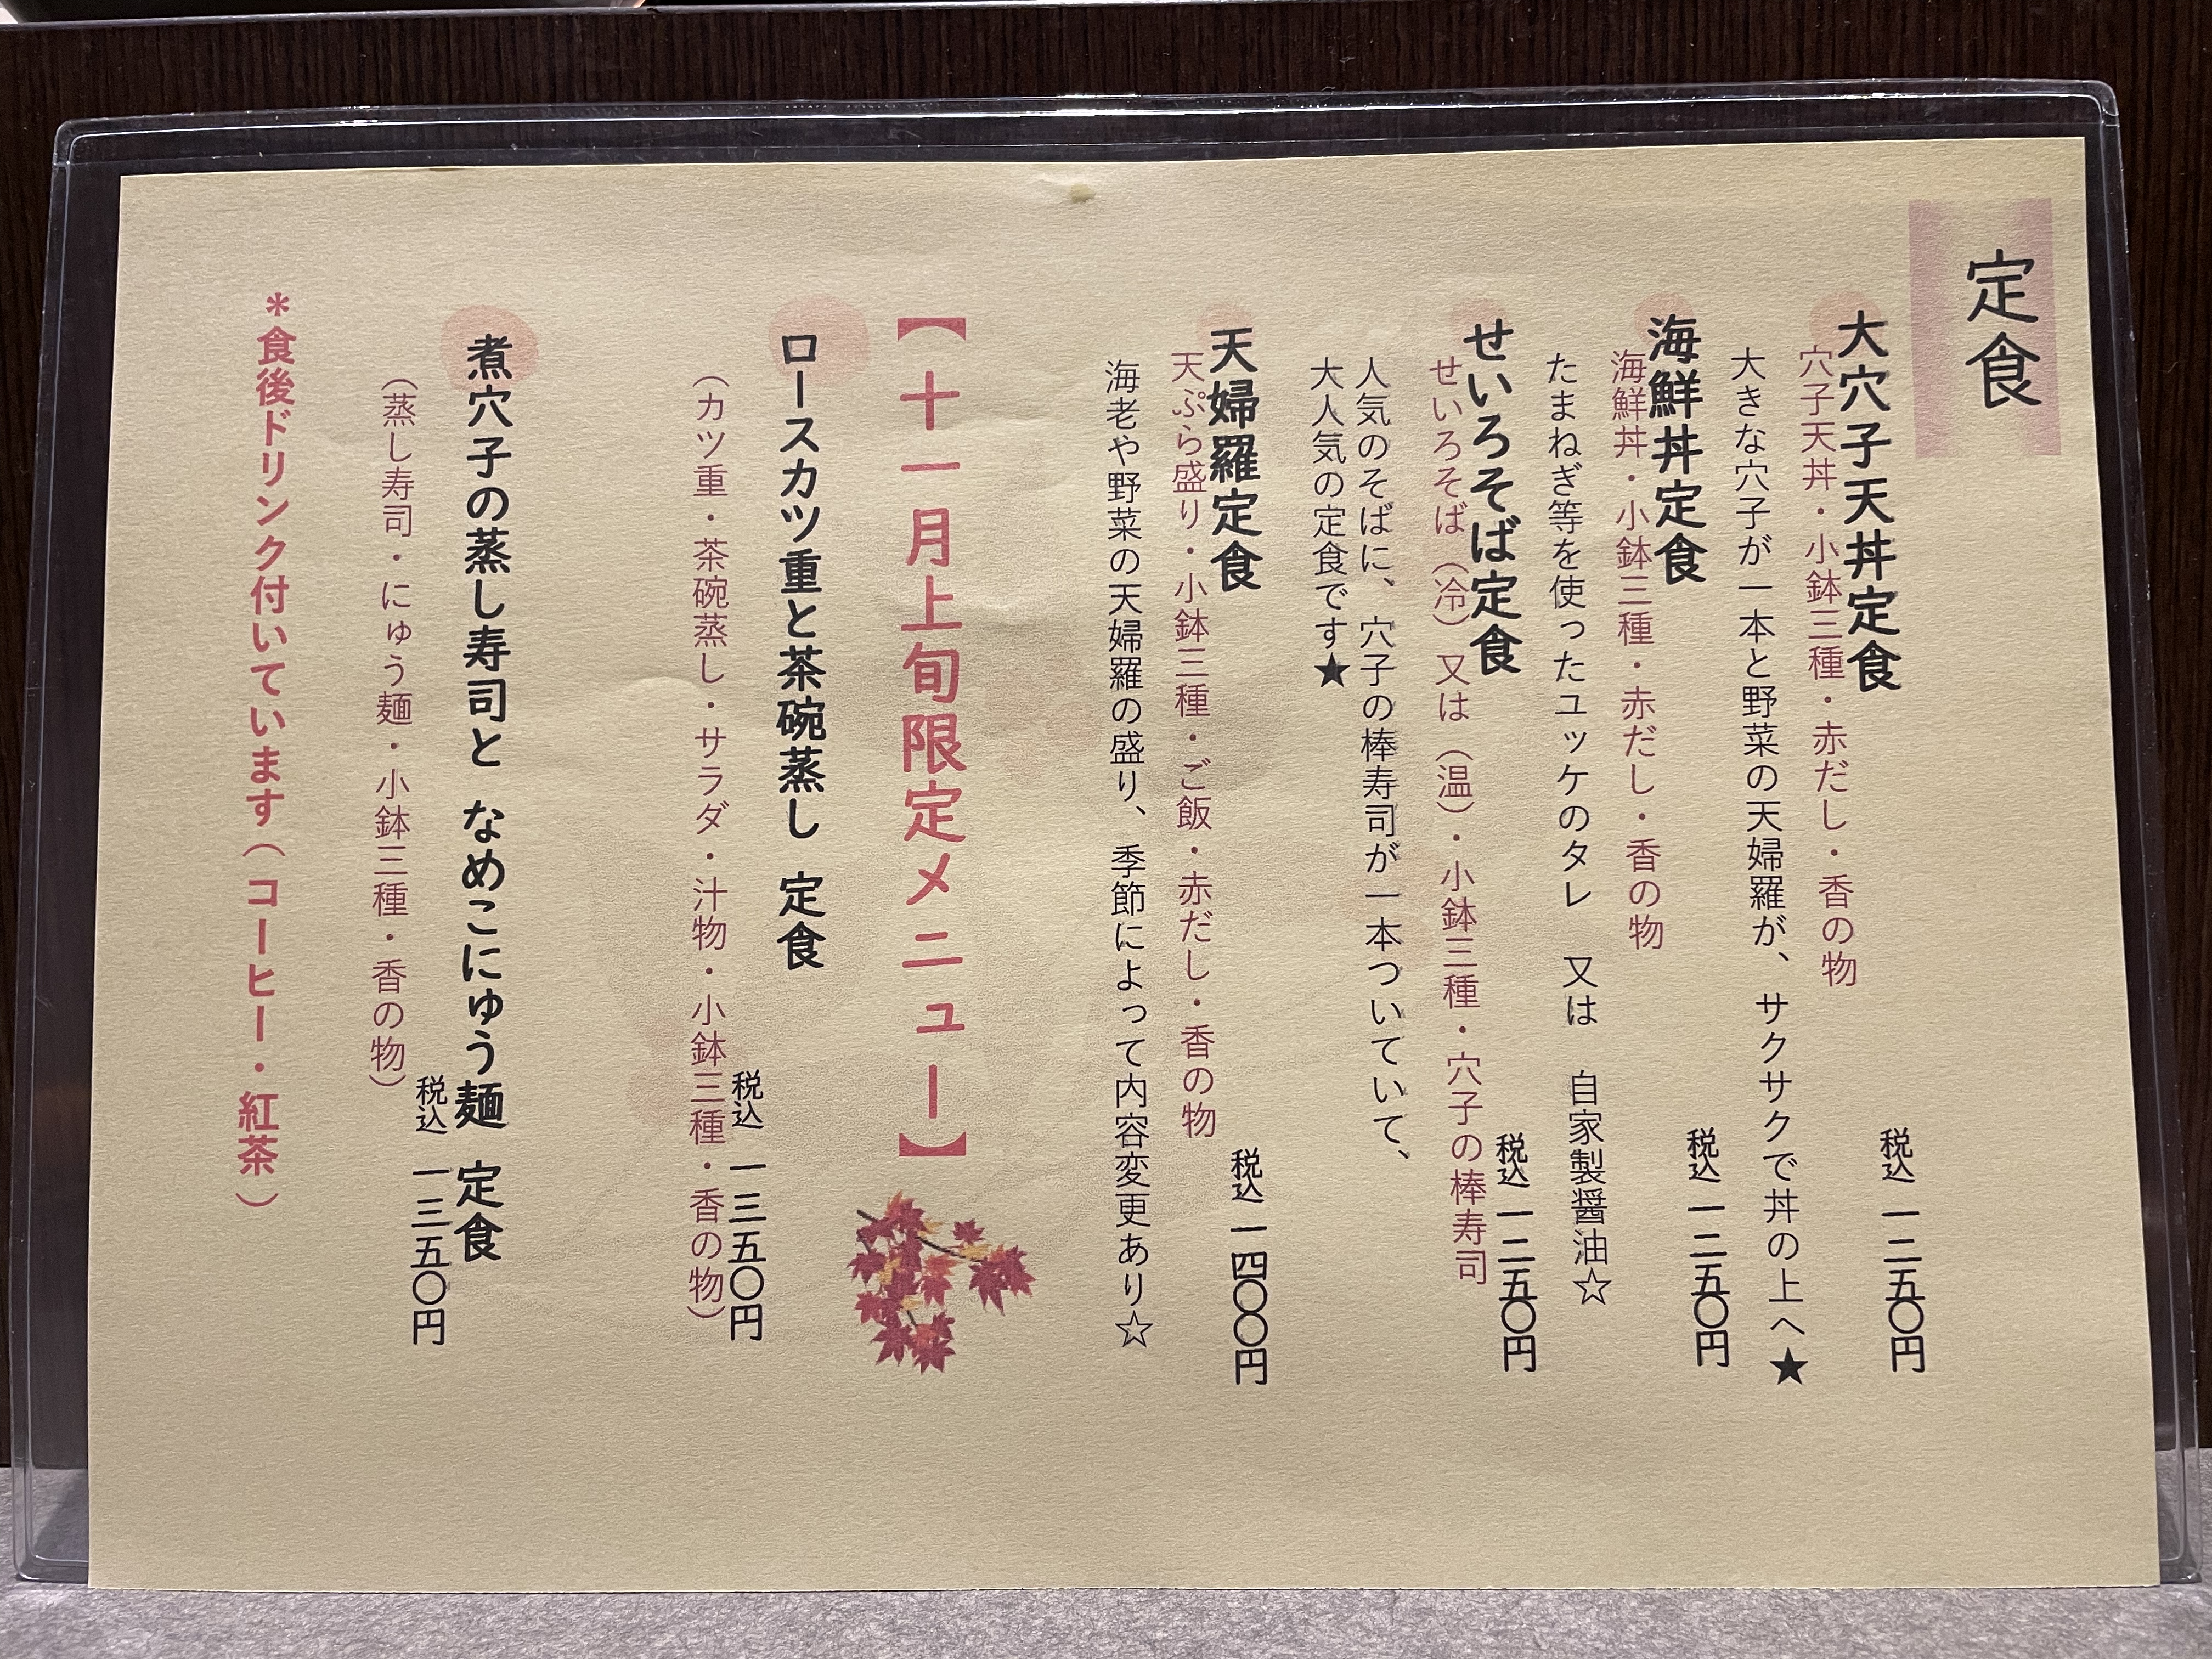 定食
大穴子天丼定食
税込 一二五〇円
穴子天丼・小鉢三種・赤だし・香の物
大きな穴子が一本と野菜の天婦羅が、サクサクで丼の上へ★
海鮮丼定食
税込 一二五〇円
海鮮丼・小鉢三種・赤だし・香の物
たまねぎ等を使ったユッケのタレ 又は 自家製醤油☆
せいろそば定食
税込 一二五〇円
せいろそば（冷）又は（温）・小鉢三種・穴子の棒寿司
人気のそばに、穴子の棒寿司が一本ついていて、
大人気の定食です★
天婦羅定食
税込 一四〇〇円
天ぷら盛り・小鉢三種・ご飯・赤だし・香の物
海老や野菜の天婦羅の盛り、季節によって内容変更あり☆
【十一月上旬限定メニュー】
ロースカツ重と茶碗蒸し 定食
税込 一三五〇円
（カツ重・茶碗蒸し・サラダ・汁物・小鉢三種・香の物）
煮穴子の蒸し寿司と なめこにゅう麺 定食
税込 一三五〇円
（蒸し寿司・にゅう麺・小鉢三種・香の物）
＊食後ドリンク付いています（コーヒー・紅茶）